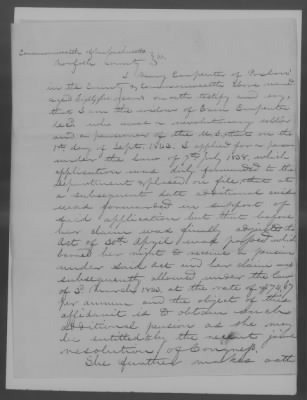 Commonwealth of Massachusetts
Norfolk County } ss.
I Nancy Carpenter of Foxboro'
in the County & Commonwealth above
aged Sixty five years on oath testify and say,
that I am the widow of Ezra Carpenter
dec'd. who was a revolutionary soldier
and a pensioner of the U.S. that on the
day of Sept. 1843. I applied for a pension
under the Law of 7th July 1838. which
application was duly forwarded to the
Department & placed on file, that at
a subsequent date additional evid
was forwarded in support of
said application but that before
her claim was finally adjusted the
Act of 30th April was passed which
barred her right to receive a pension
under said act and her claim was
subsequently allowed under the law
of 3d March 1843. at the rate of $74,67
per annum and the object of this
affidavit is to obtain such
additional pension as she may
be entitled by the recent joint
resolution of Congress.
She further makes oath